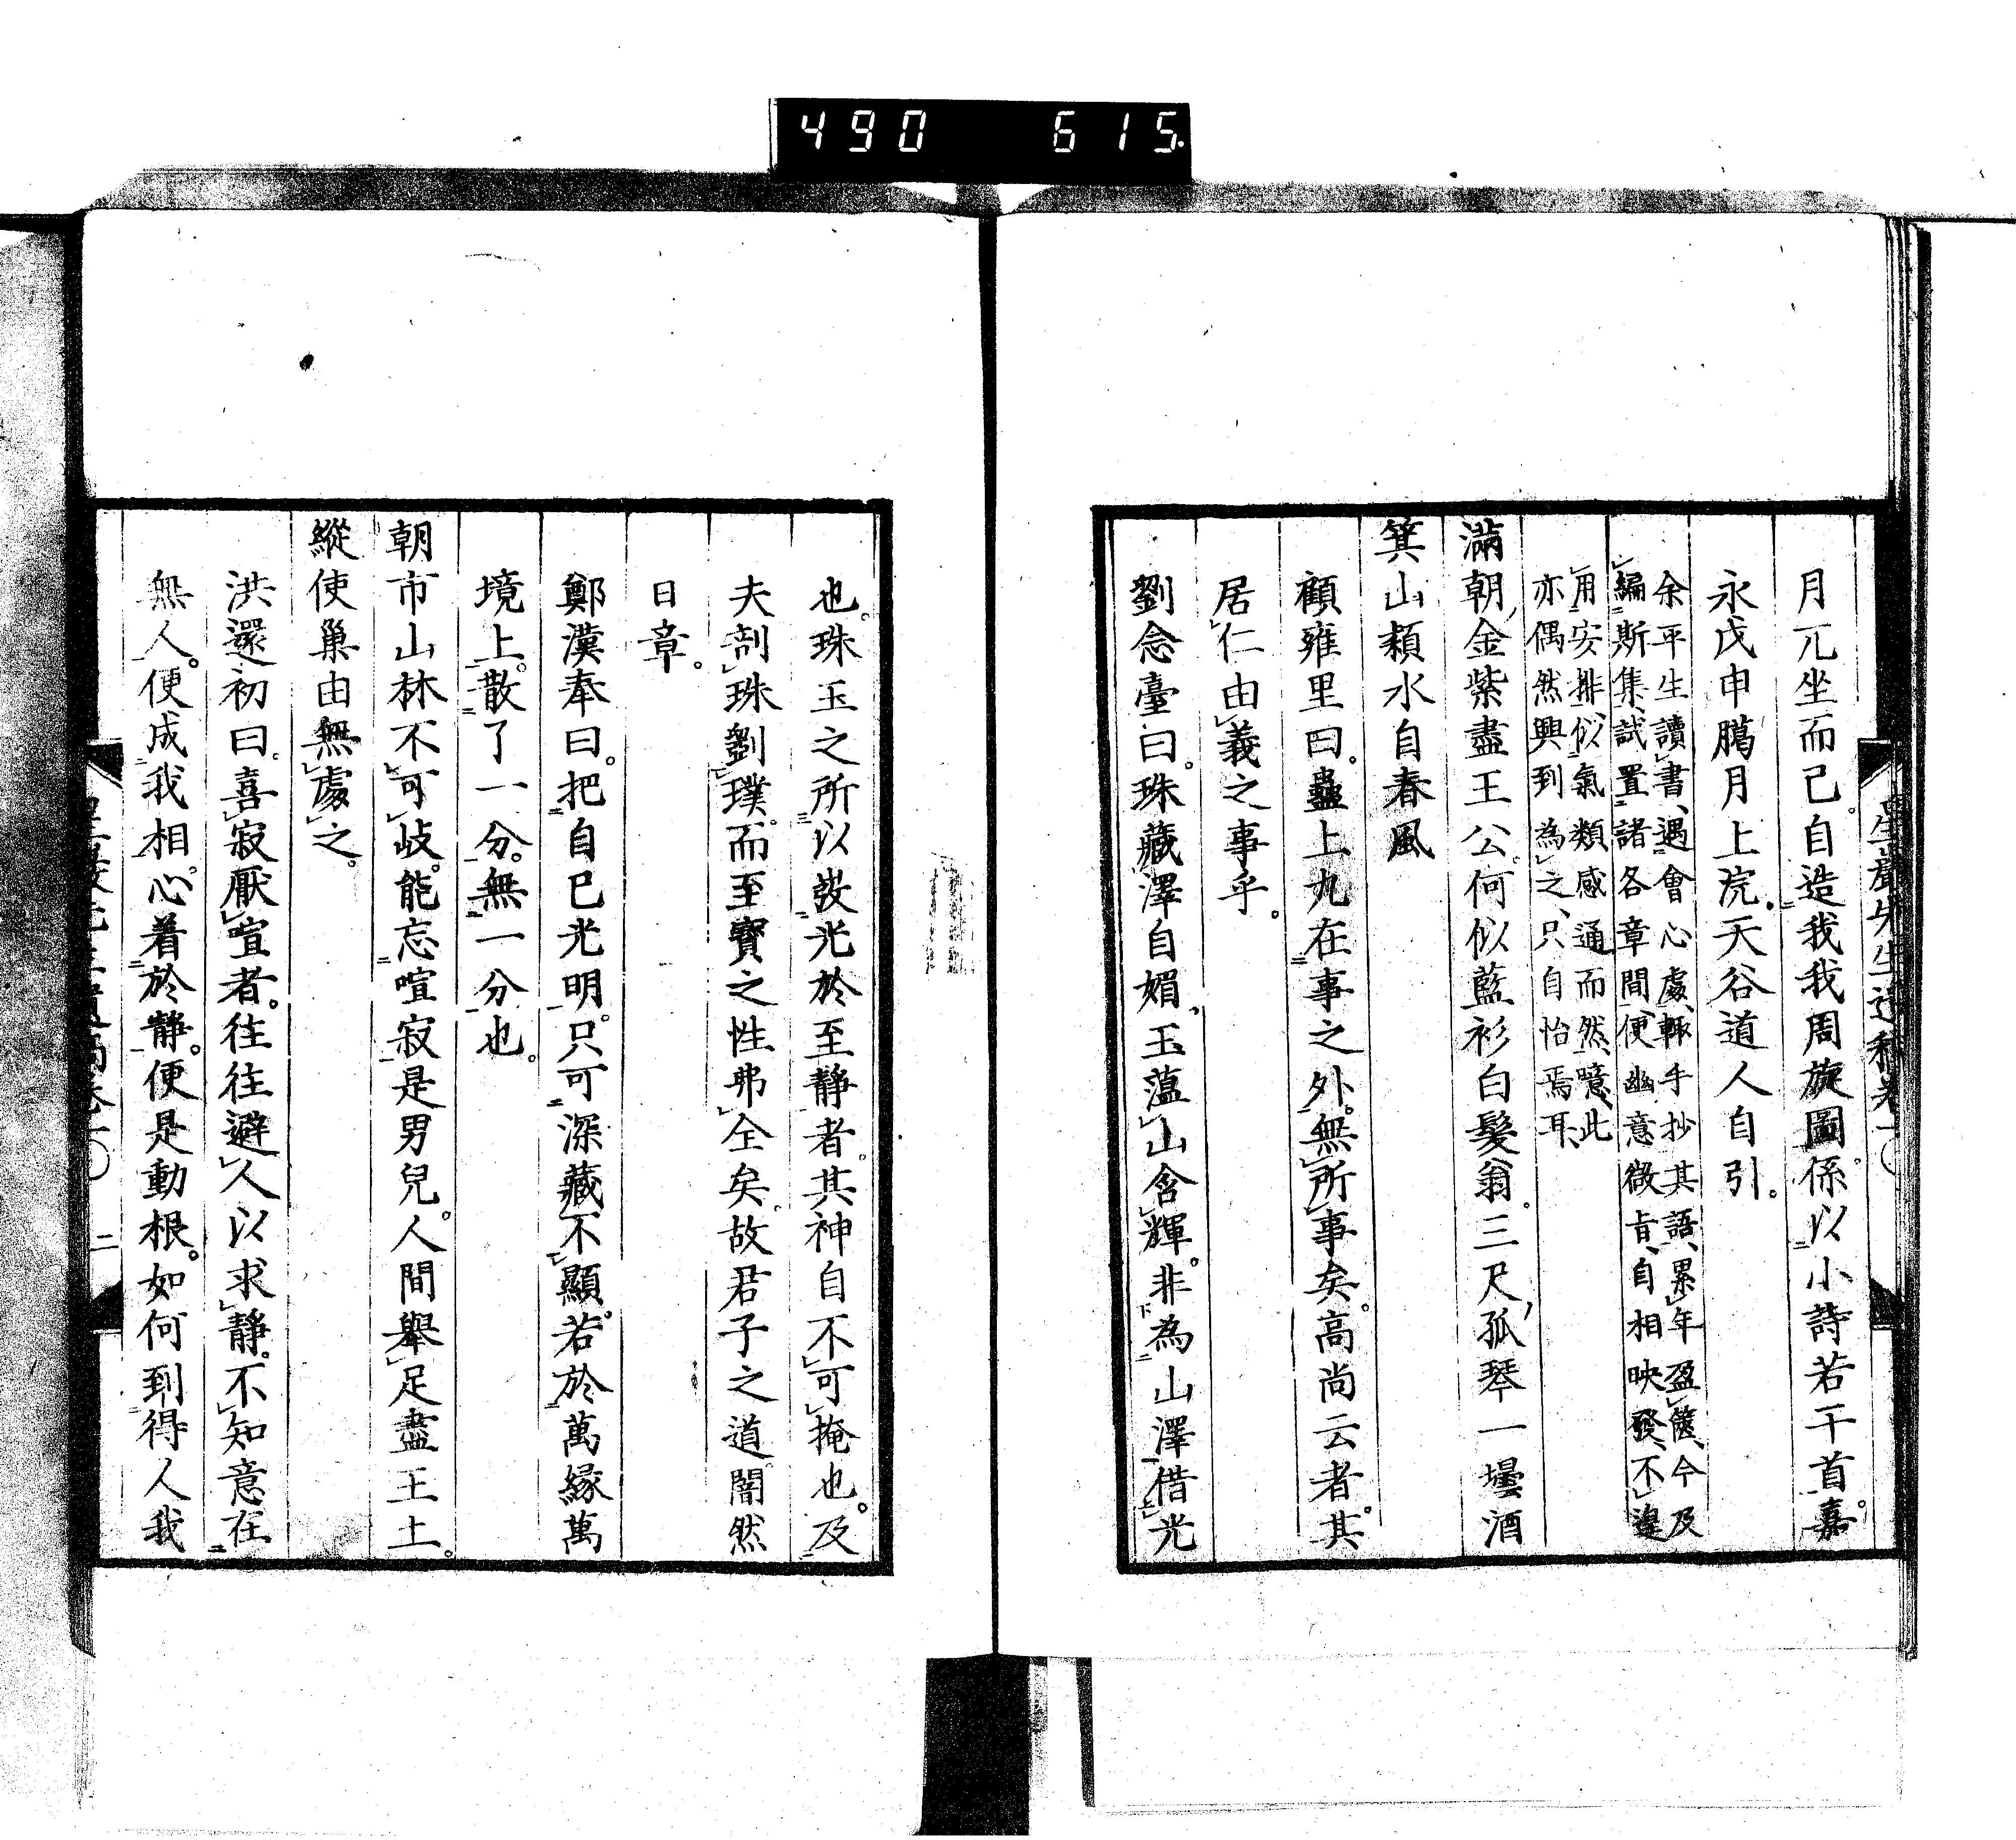 490 615
月兀坐而已。自造我我周旋圖。係以小詩若干首。嘉
永戊申臈月上浣。天谷道人自引。
余平生讀書、遇會心處、輙手抄其語、累年盈篋、今及
編斯集、試置諸各章間、便幽意微旨、自相映發、不遑
用安排、似氣類感通而然、噫、此
亦偶然興到為之、只自怡焉耳、
滿朝金紫盡王公。何似藍衫白髮翁。三尺孤琴一壜酒
箕山頴水自春風
顧雍里曰。蠱上九在事之外。無所事矣。高尚云者。其
居仁由義之事乎。
劉念臺曰。珠藏澤自媚。玉薀山含輝。非為山澤借光
也。珠玉之所以發光於至靜者。其神自不可掩也。及
夫剖珠劉璞。而至寳之性弗全矣。故君子之道。闇然
日章。
鄭漢奉曰。把自己光明。只可深藏不顯。若於萬緣萬
境上。散了一分。無一分也。
朝市山林不可岐。能忘喧寂是男兒。人間舉足盡王土。
縱使巢由無處之。
洪還初曰。喜寂厭喧者。往往避人以求靜。不知意在
無人。便成我相。心着於靜。便是動根。如何到得人我